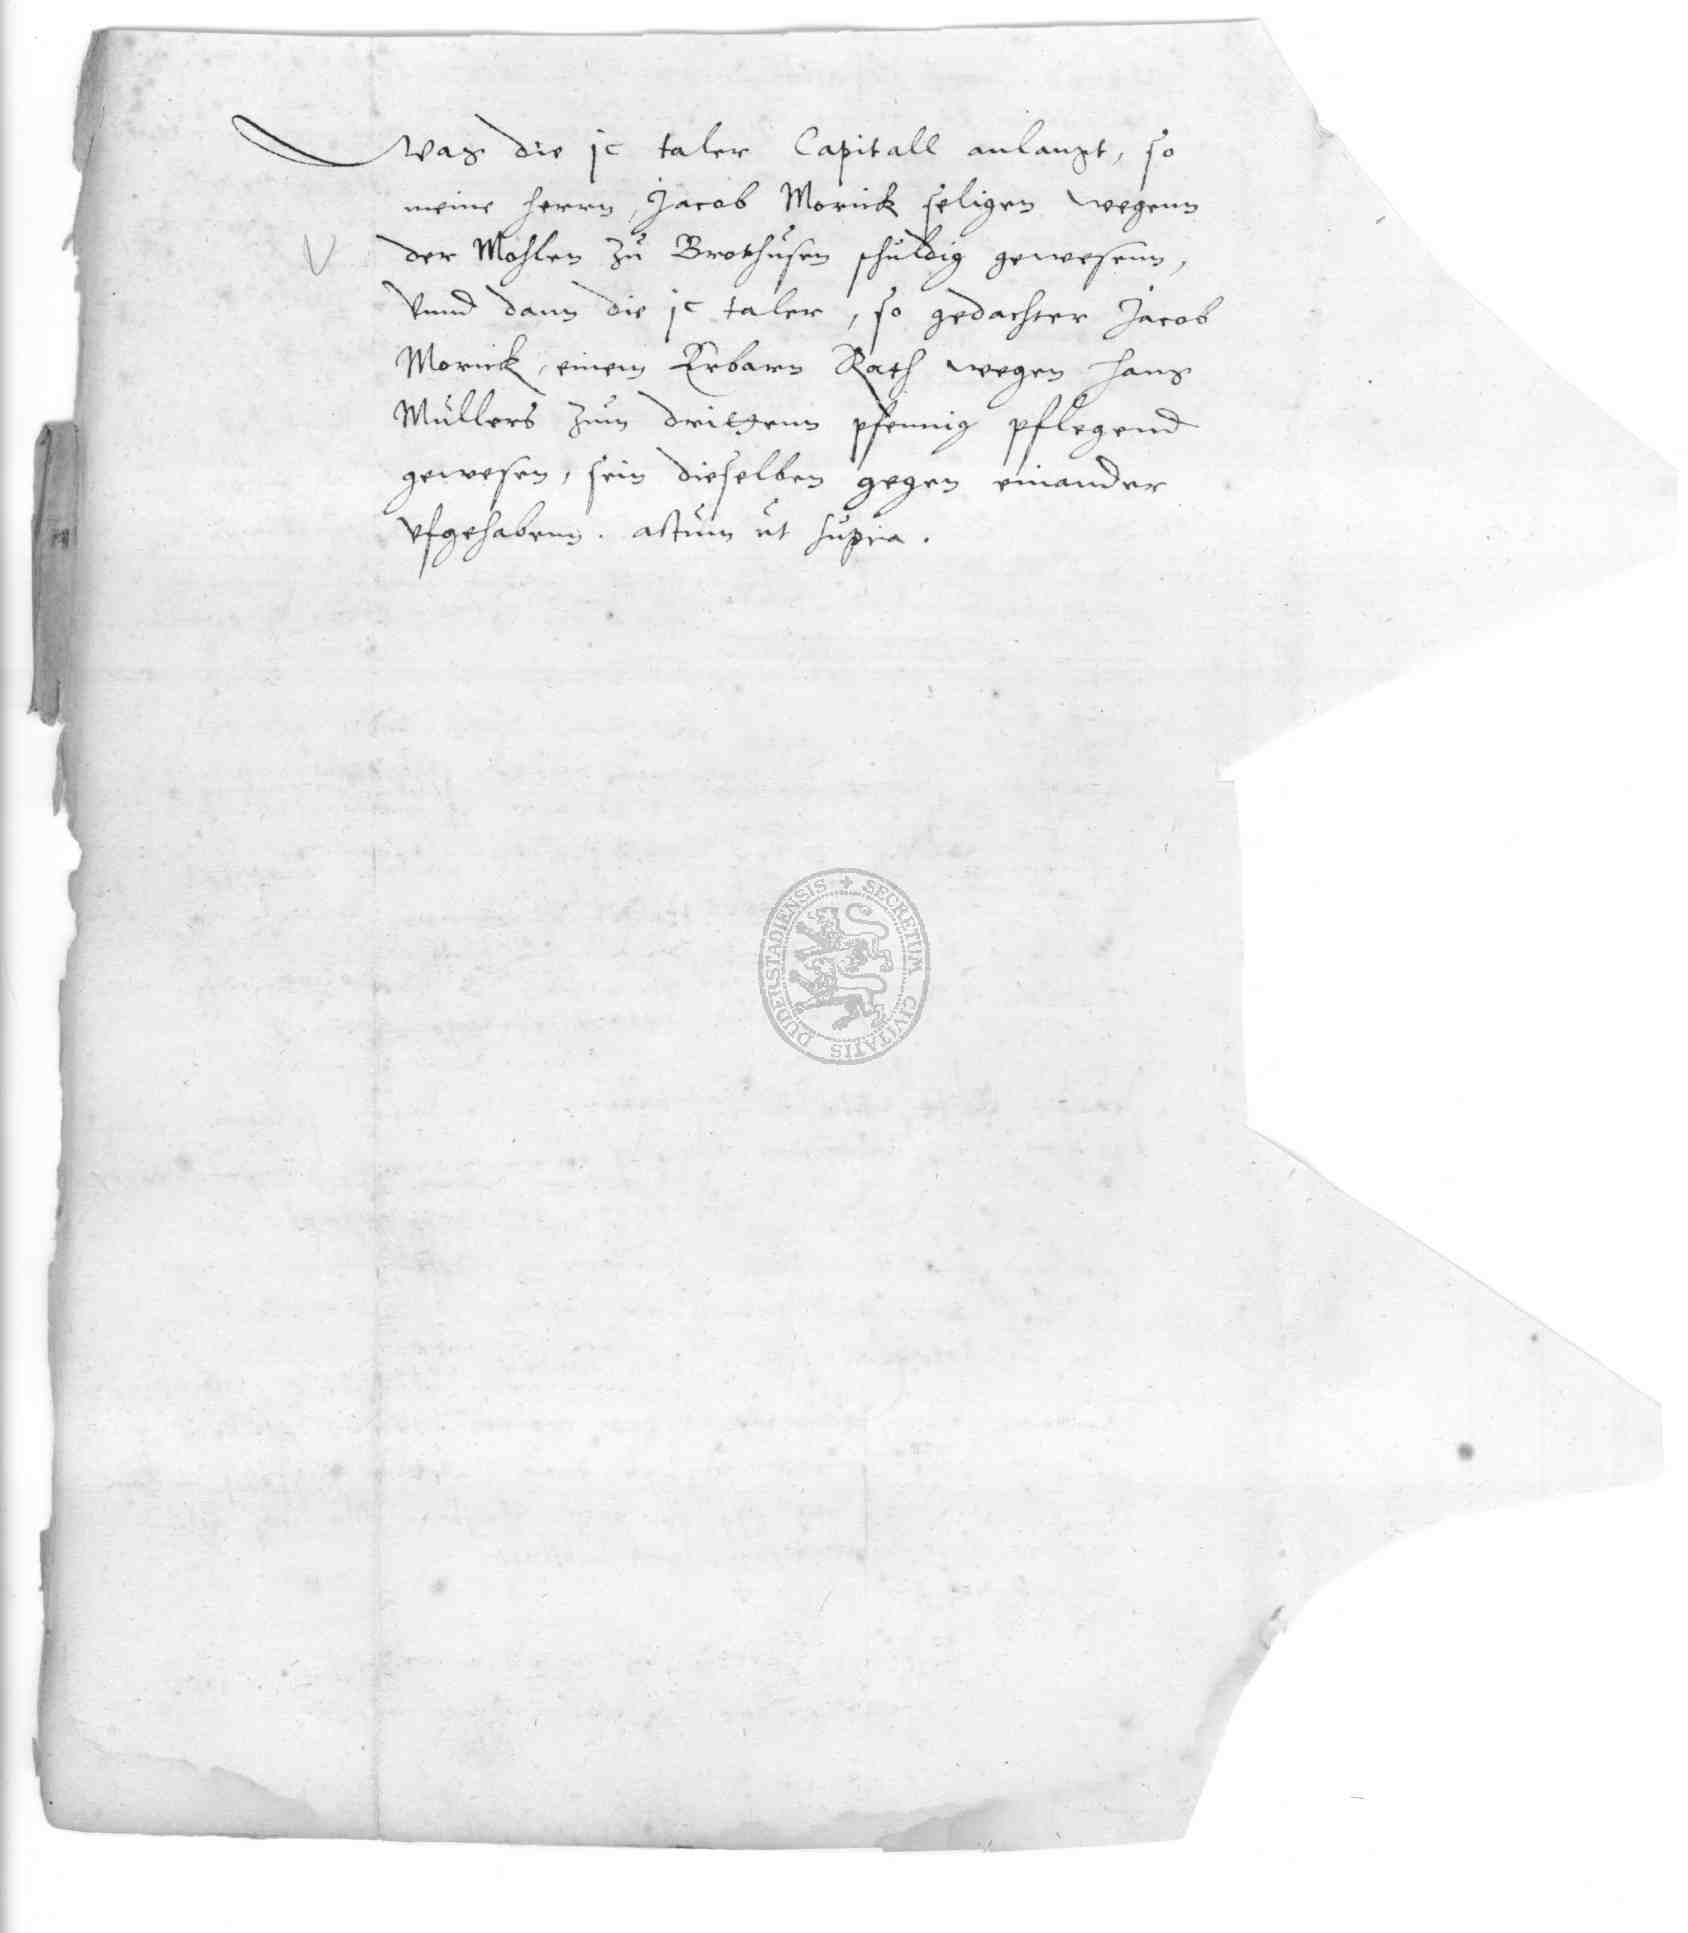 Was die jc taler Capitall anlangt, so
meine herrn, Jacob Morick seligen wegenn
der Mohlen zu Brothusen schuldig gewesenn,
Vnnd dann die jc taler, so gedachter Jacob
Morick, einem Erbarn Rath wegen Hans
Müllers zum dritgenn pfennig pflegend
gewesen, sein dieselben gegen einander
vfgehabenn. actum ut supra.
SECRETUM CIVITATIS DUDERSTADIENSIS